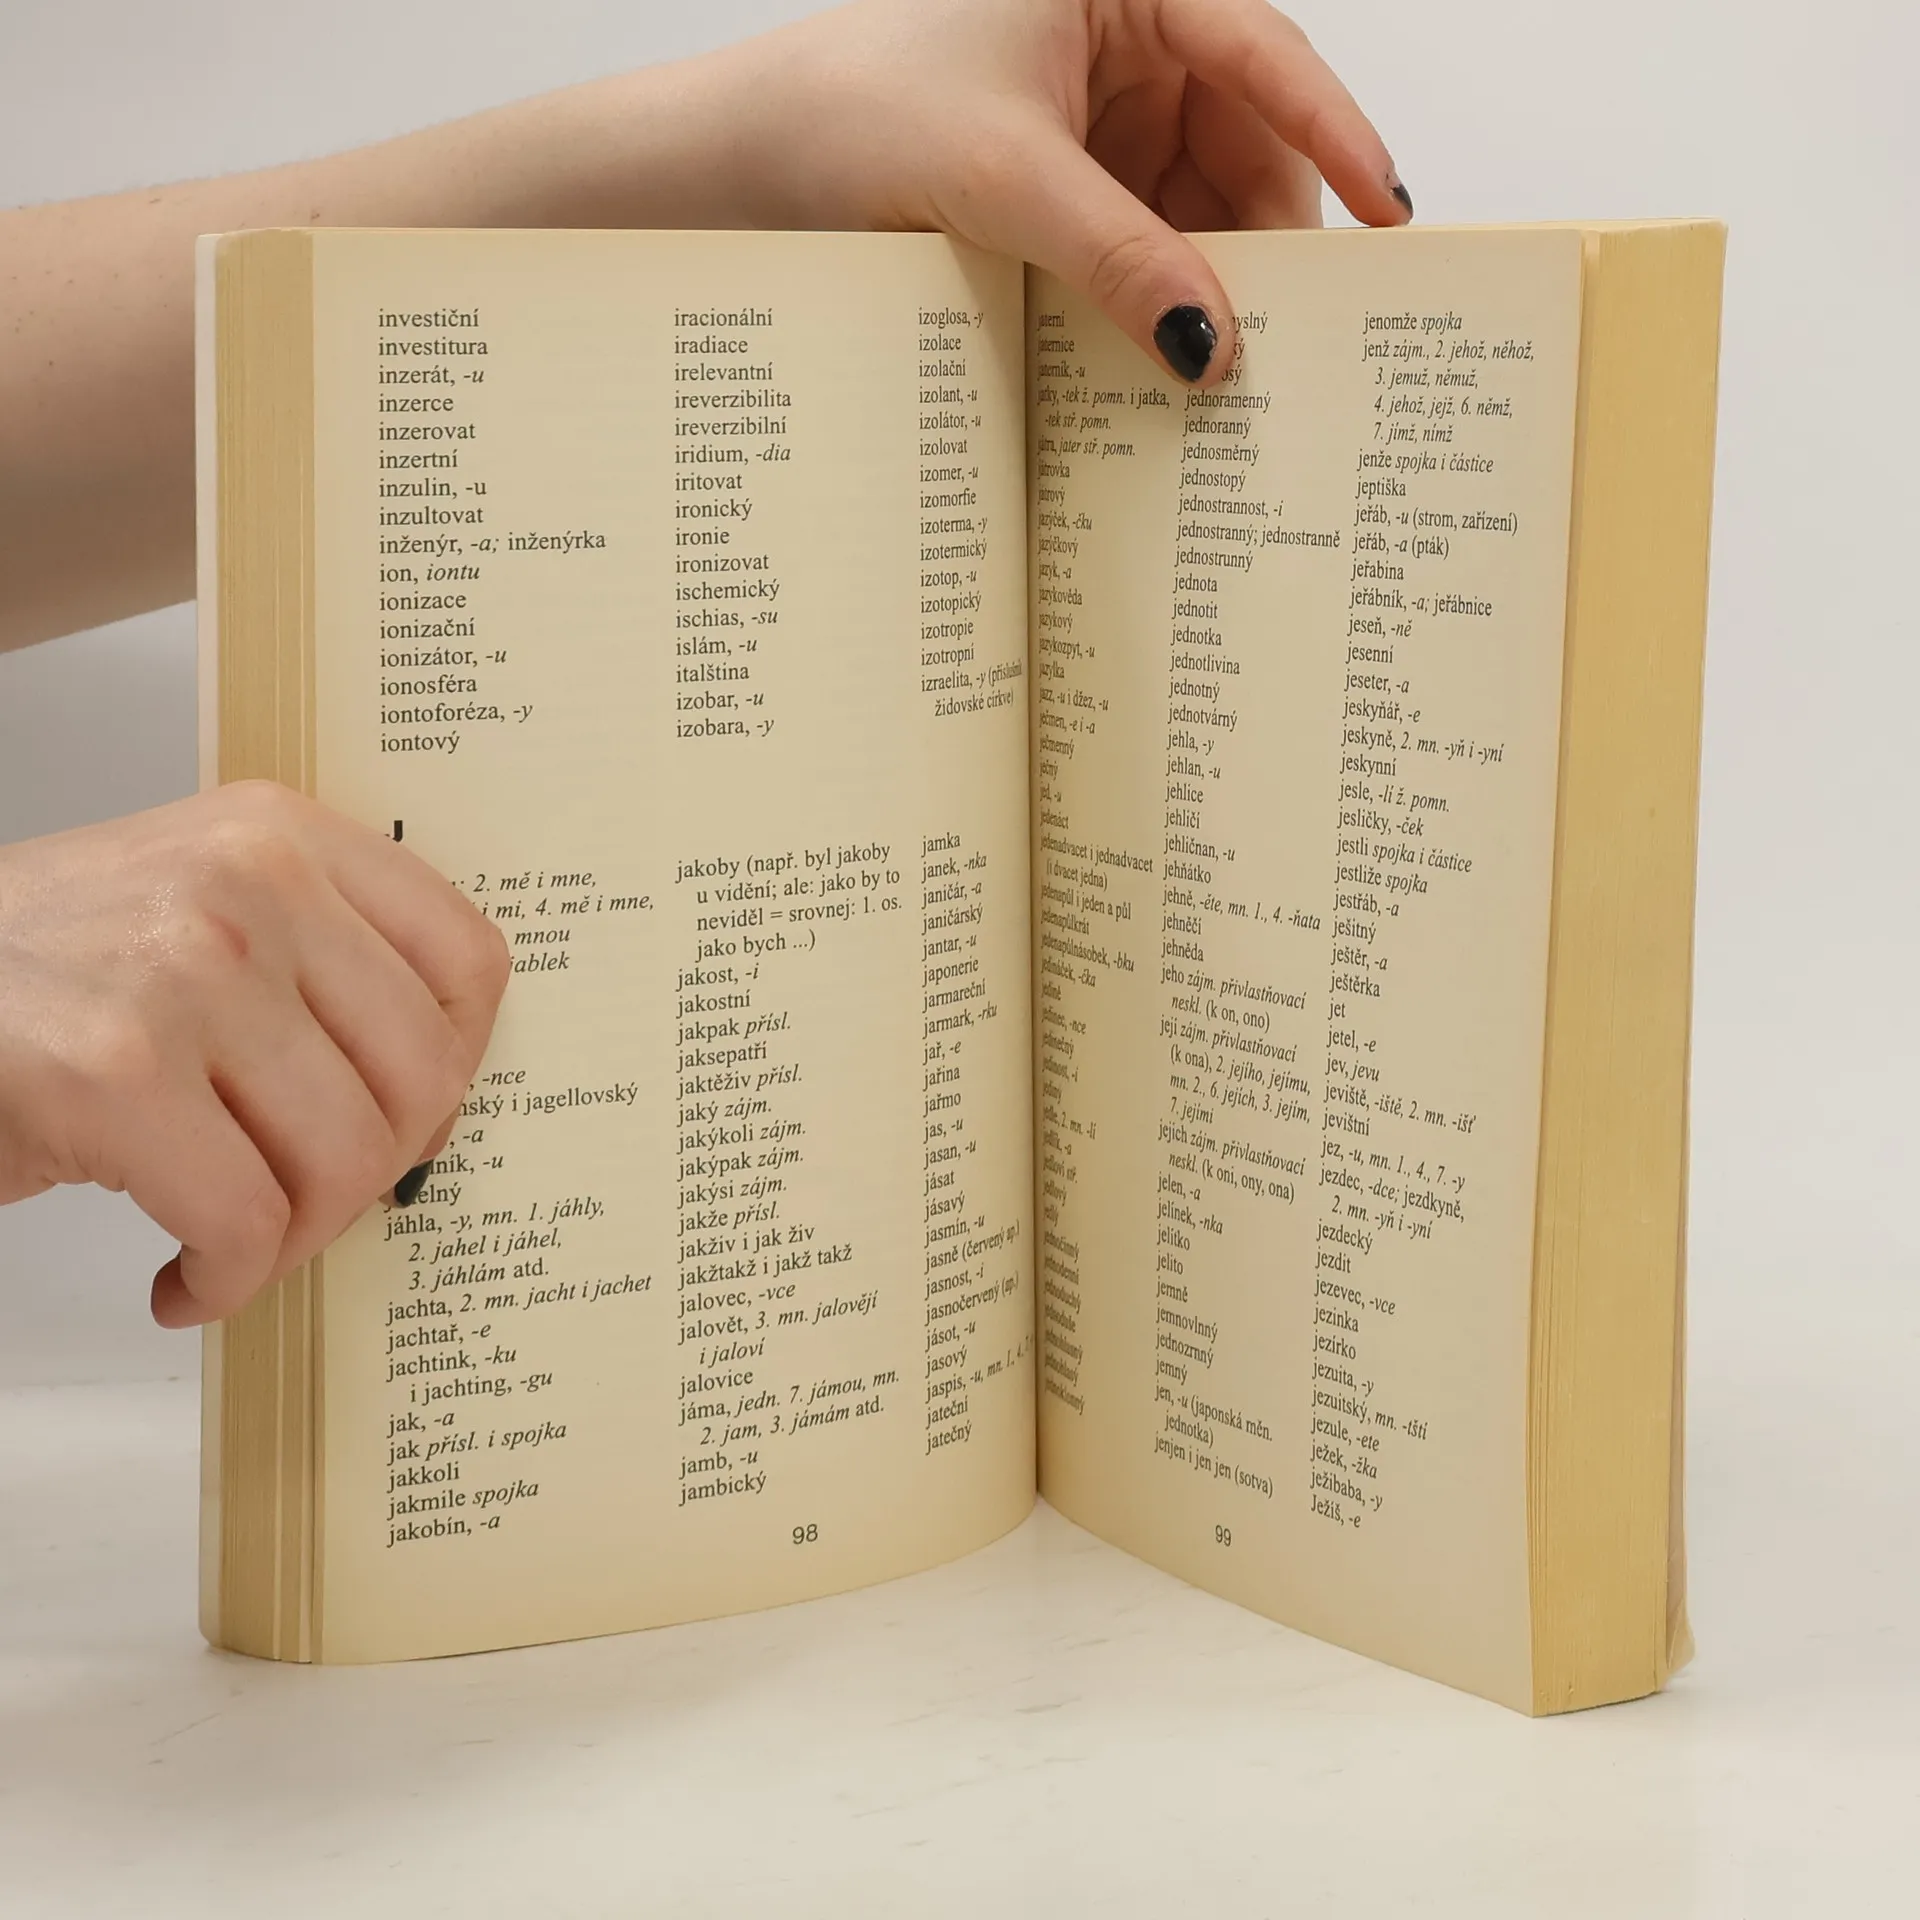 investiční
investitura
inzerát, -u
inzerce
inzerovat
inzertní
inzulin, -u
inzultovat
inženýr, -a; inženýrka
ion, iontu
ionizace
ionizační
ionizátor, -u
ionosféra
iontoforéza, -y
iontový
iracionální
iradiace
irelevantní
ireverzibilita
ireverzibilní
iridium, -dia
iritovat
ironický
ironie
ironizovat
ischemický
ischias, -su
islám, -u
italština
izobar, -u
izobara, -y
izoglosa, -y
izolace
izolační
izolant, -u
izolátor, -u
izolovat
izomer, -u
izomorfie
izoterma, -y
izotermický
izotop, -u
izotopický
izotropie
izotropní
izraelita, -y (příslušník
židovské církve)
J
2. mě i mne,
i mi, 4. mě i mne,
mnou
jablek
-nce
i jagellovský
-a
-u
jáhla, -y, mn. 1. jáhly,
2. jahel i jáhel,
3. jáhlám atd.
jachta, 2. mn. jacht i jachet
jachtař, -e
jachtink, -ku
i jachting, -gu
jak, -a
jak přísl. i spojka
jakkoli
jakmile spojka
jakobín, -a
jakoby (např. byl jakoby
u vidění; ale: jako by to
neviděl = srovnej: 1. os.
jako bych ...)
jakost, -i
jakostní
jakpak přísl.
jaksepatří
jaktěživ přísl.
jaký zájm.
jakýkoli zájm.
jakýpak zájm.
jakýsi zájm.
jakže přísl.
jakživ i jak živ
jakžtakž i jakž takž
jalovec, -vce
jalovět, 3. mn. jalovějí
i jaloví
jalovice
jáma, jedn. 7. jámou, mn.
2. jam, 3. jámám atd.
jamb, -u
jambický
jamka
janek, -nka
janičár, -a
janičárský
jantar, -u
japonerie
jarmareční
jarmark, -rku
jař, -e
jařina
jařmo
jas, -u
jasan, -u
jásat
jásavý
jasmín, -u
jasně (červený ap.)
jasnost, -i
jasnočervený (ap.)
jásot, -u
jasový
jaspis, -u, mn. 1., 4.,
jateční
jatečný
98
jaterní
jaternice
jaterník, -u
jatky, -tek ž. pomn. i jatka,
-tek stř. pomn.
játra, jater stř. pomn.
játrovka
játrový
jazýček, -čku
jazýčkový
jazyk, -a
jazykověda
jazykový
jazykozpyt, -u
jazylka
jazz, -u i džez, -u
ječmen, -e i -a
ječmenný
ječný
jed, -u
jedenáct
jedenadvacet i jednadvacet
(i dvacet jedna)
jedenapůl i jeden a půl
jedenapůlkrát
jedenapůlnásobek, -bku
jedináček, -čka
jedině
jedinec, -nce
jedinečný
jedinost, -i
jediný
jedle, 2. mn. -lí
jedlík, -a
jedlový
jedlý
jednočinný
jednodenní
jednoduchý
jednoduše
jednohlasný
jednoklonný
jednoramenný
jednoranný
jednosměrný
jednostopý
jednostrannost, -i
jednostranný; jednostranně
jednostrunný
jednota
jednotit
jednotka
jednotlivina
jednotný
jednotvárný
jehla, -y
jehlan, -u
jehlice
jehličí
jehličnan, -u
jehňátko
jehně, -ěte, mn. 1., 4. -ňata
jehněčí
jehněda
jeho zájm. přivlastňovací
neskl. (k on, ono)
její zájm. přivlastňovací
(k ona), 2. jejího, jejímu,
mn. 2., 6. jejích, 3. jejím,
7. jejími
jejich zájm. přivlastňovací
neskl. (k oni, ony, ona)
jelen, -a
jelínek, -nka
jelítko
jelito
jemně
jemnovlnný
jednozrnný
jemný
jen, -u (japonská měn.
jednotka)
jenjen i jen jen (sotva)
jenomže spojka
jenž zájm., 2. jehož, něhož,
3. jemuž, němuž,
4. jehož, jejž, 6. němž,
7. jímž, nímž
jenže spojka i částice
jeptiška
jeřáb, -u (strom, zařízení)
jeřáb, -a (pták)
jeřabina
jeřábník, -a; jeřábnice
jeseň, -ně
jesenní
jeseter, -a
jeskyňář, -e
jeskyně, 2. mn. -yň i -yní
jeskynní
jesle, -lí ž. pomn.
jesličky, -ček
jestli spojka i částice
jestliže spojka
jestřáb, -a
ješitný
ještěr, -a
ještěrka
jet
jetel, -e
jev, jevu
jeviště, -iště, 2. mn. -išť
jevištní
jez, -u, mn. 1., 4., 7. -y
jezdec, -dce; jezdkyně,
2. mn. -yň i -yní
jezdecký
jezdit
jezevec, -vce
jezinka
jezírko
jezuita, -y
jezuitský, mn. -tští
jezule, -ete
ježek, -žka
ježibaba, -y
Ježíš, -e
99